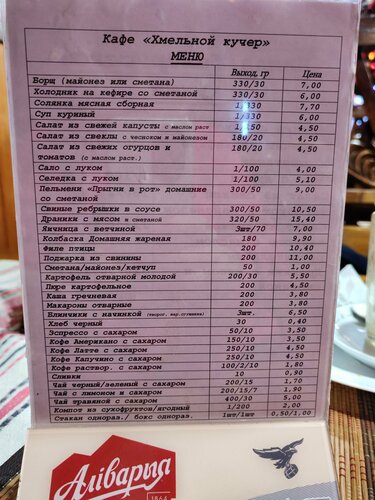 Кафе «Хмельной кучер»
МЕНЮ
Выход, гр Цена
Борщ (майонез или сметана) 330/30 7,00
Холодник на кефире со сметаной 330/30 6,00
Солянка мясная сборная 1/330 7,70
Суп куриный 1/330 6,00
Салат из свежей капусты с маслом раст 1/150 4,50
Салат из свеклы с чесноком и майонезом 180/20 4,50
Салат из свежих огурцов и 180/20 4,50
томатов (с маслом раст.)
Сало с луком 1/100 4,00
Селедка с луком 1/100 5,10
Пельмени «Прыгни в рот» домашние 300/50 9,00
со сметаной
Свиные ребрышки в соусе 300/50 10,50
Драники с мясом и сметаной 320/50 15,40
Яичница с ветчиной 3шт/70 7,00
Колбаска Домашняя жареная 180 9,90
Филе птицы 200 10,40
Поджарка из свинины 200 11,00
Сметана/майонез/кетчуп 50 1,00
Картофель отварной молодой 200/30 5,50
Пюре картофельное 200 4,50
Каша гречневая 200 3,80
Макароны отварные 200 3,80
Блинчики с начинкой (творог, вар.сгущенка) 3шт. 6,50
Хлеб черный 30 0,40
Эспрессо с сахаром 50/10 3,50
Кофе Американо с сахаром 150/10 3,50
Кофе Латте с сахаром 250/10 4,50
Кофе Капучино с сахаром 250/10 4,50
Кофе раствор. с сахаром 100/2/10 1,80
Сливки 10 0,90
Чай черный/зеленый с сахаром 200/15 1,70
Чай с лимоном и сахаром 200/15/7 1,90
Чай травяной с сахаром 400/30 5,00
Компот из сухофруктов/ягодный 1/200 2,00
Стакан однораз./ бокс однораз. 1шт/1шт 0,50/1,00
Алiварыя
1864